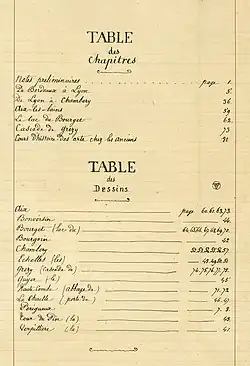 TABLE
des
Chapitres
Notes préliminaires pag. 1.
De Bordeaux à Lyon 5.
de Lyon à Chambéry 36.
Aix-les-bains 54
Le lac du Bourget 62.
Cascade de Grésy 73
Cours d'histoire des arts chez les anciens
TABLE
des
Dessins
Aix pag.
Bonvorsin 44.
Bourget (lac du)
Bourgoin 42
Chambéry
Echelles (les)
Grésy (cascade de)
Guyer (le) 45
Haute Combe (abbaye de) 71. 72
La Chaille (porte de) 46. 47
Périgueux 7. 8.
Tour du Pin (la) 43.
Verpillière (la) 41.